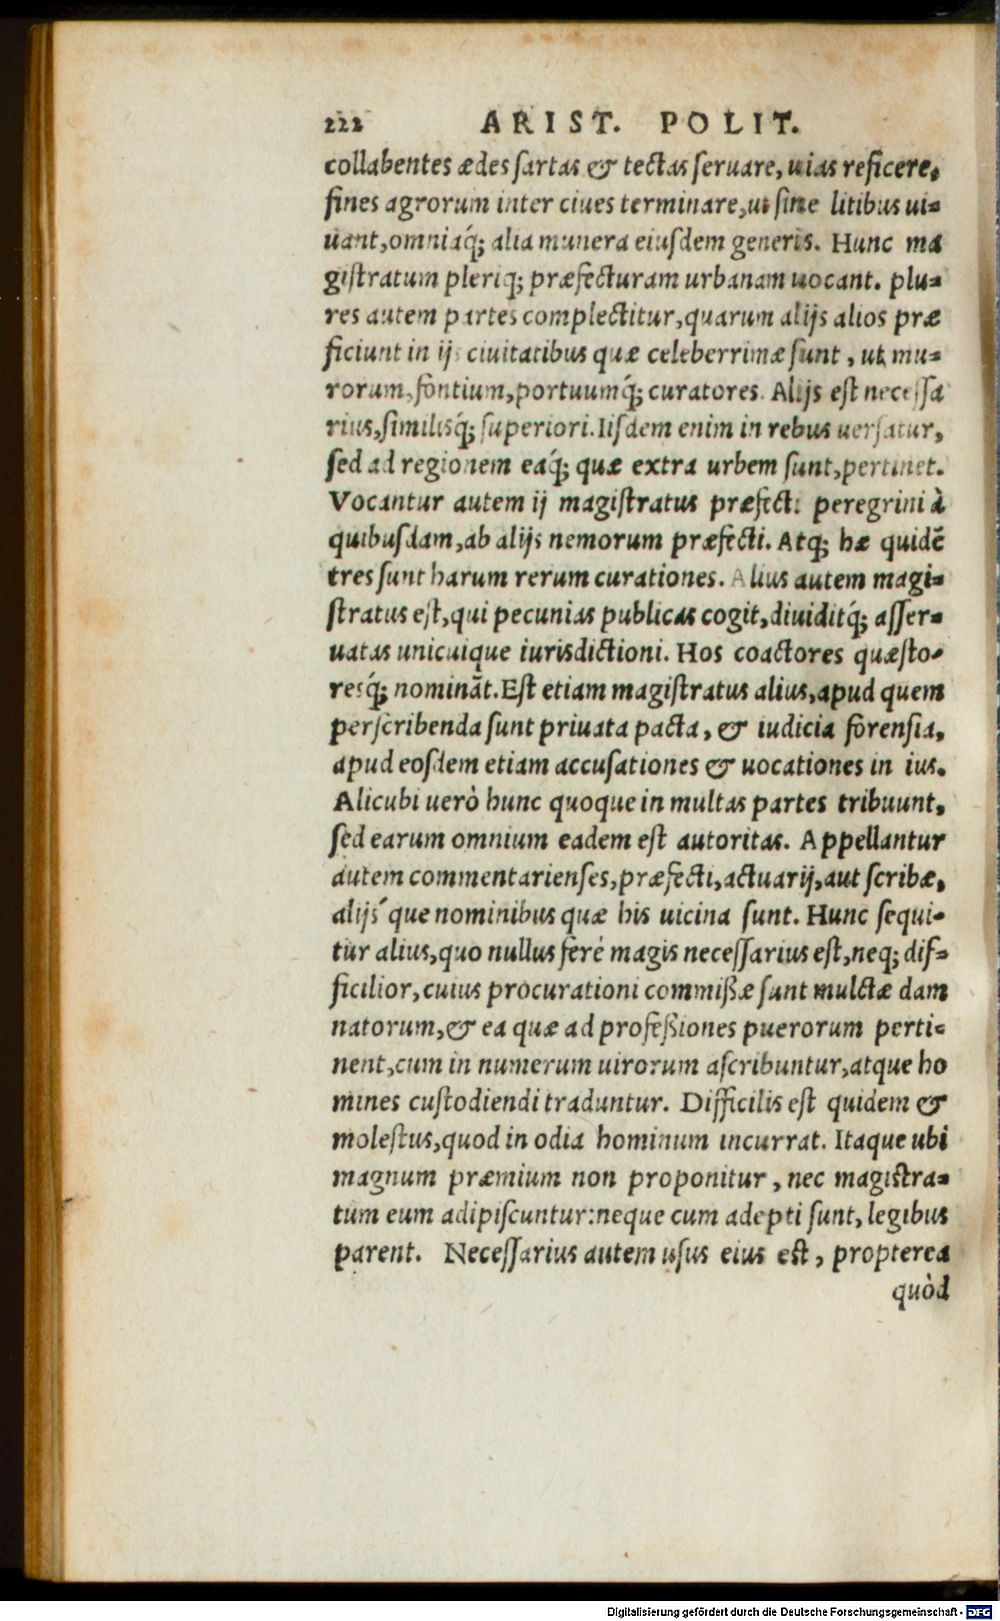 222 ARIST. POLIT.
collabentes ædes ſartas & tectas ſeruare, uias reficere,
fines agrorum inter ciues terminare, ut ſine litibus ui-
uant, omniaq́; alia munera eiuſdem generis. Hunc ma
giſtratum pleriq; præfecturam urbanam uocant. plu-
res autem partes complectitur, quarum alijs alios præ
ficiunt in ijs ciuitatibus quæ celeberrimæ ſunt, ut mu-
rorum, fontium, portuumq́; curatores. Alijs eſt neceſſa
rius, ſimilisq́; ſuperiori. Iiſdem enim in rebus uerſatur,
ſed ad regionem eaq́; quæ extra urbem ſunt, pertinet.
Vocantur autem ij magiſtratus præfecti peregrini à
quibuſdam, ab alijs nemorum præfecti. Atq; hæ quidẽ
tres ſunt harum rerum curationes. Alius autem magi-
ſtratus eſt, qui pecunias publicas cogit, diuiditq́; aſſer-
uatas unicuique iurisdictioni. Hos coactores quæſto-
resq́; nominãt. Eſt etiam magiſtratus alius, apud quem
perſcribenda ſunt priuata pacta, & iudicia forenſia,
apud eoſdem etiam accuſationes & uocationes in ius.
Alicubi uerò hunc quoque in multas partes tribuunt,
ſed earum omnium eadem eſt autoritas. Appellantur
autem commentarienſes, præfecti, actuarij, aut ſcribæ,
alijs'que nominibus quæ his uicina ſunt. Hunc ſequi-
tur alius, quo nullus ferè magis neceſſarius eſt, neq; dif-
ficilior, cuius procurationi commißæ ſunt mulctæ dam
natorum, & ea quæ ad profeßiones puerorum perti-
nent, cum in numerum uirorum aſcribuntur, atque ho
mines cuſtodiendi traduntur. Difficilis eſt quidem &
moleſtus, quod in odia hominum incurrat. Itaque ubi
magnum præmium non proponitur, nec magiſtra-
tum eum adipiſcuntur: neque cum adepti ſunt, legibus
parent. Neceſſarius autem uſus eius eſt, propterea
quòd
Digitalisierung gefördert durch die Deutsche Forschungsgemeinschaft - DFG